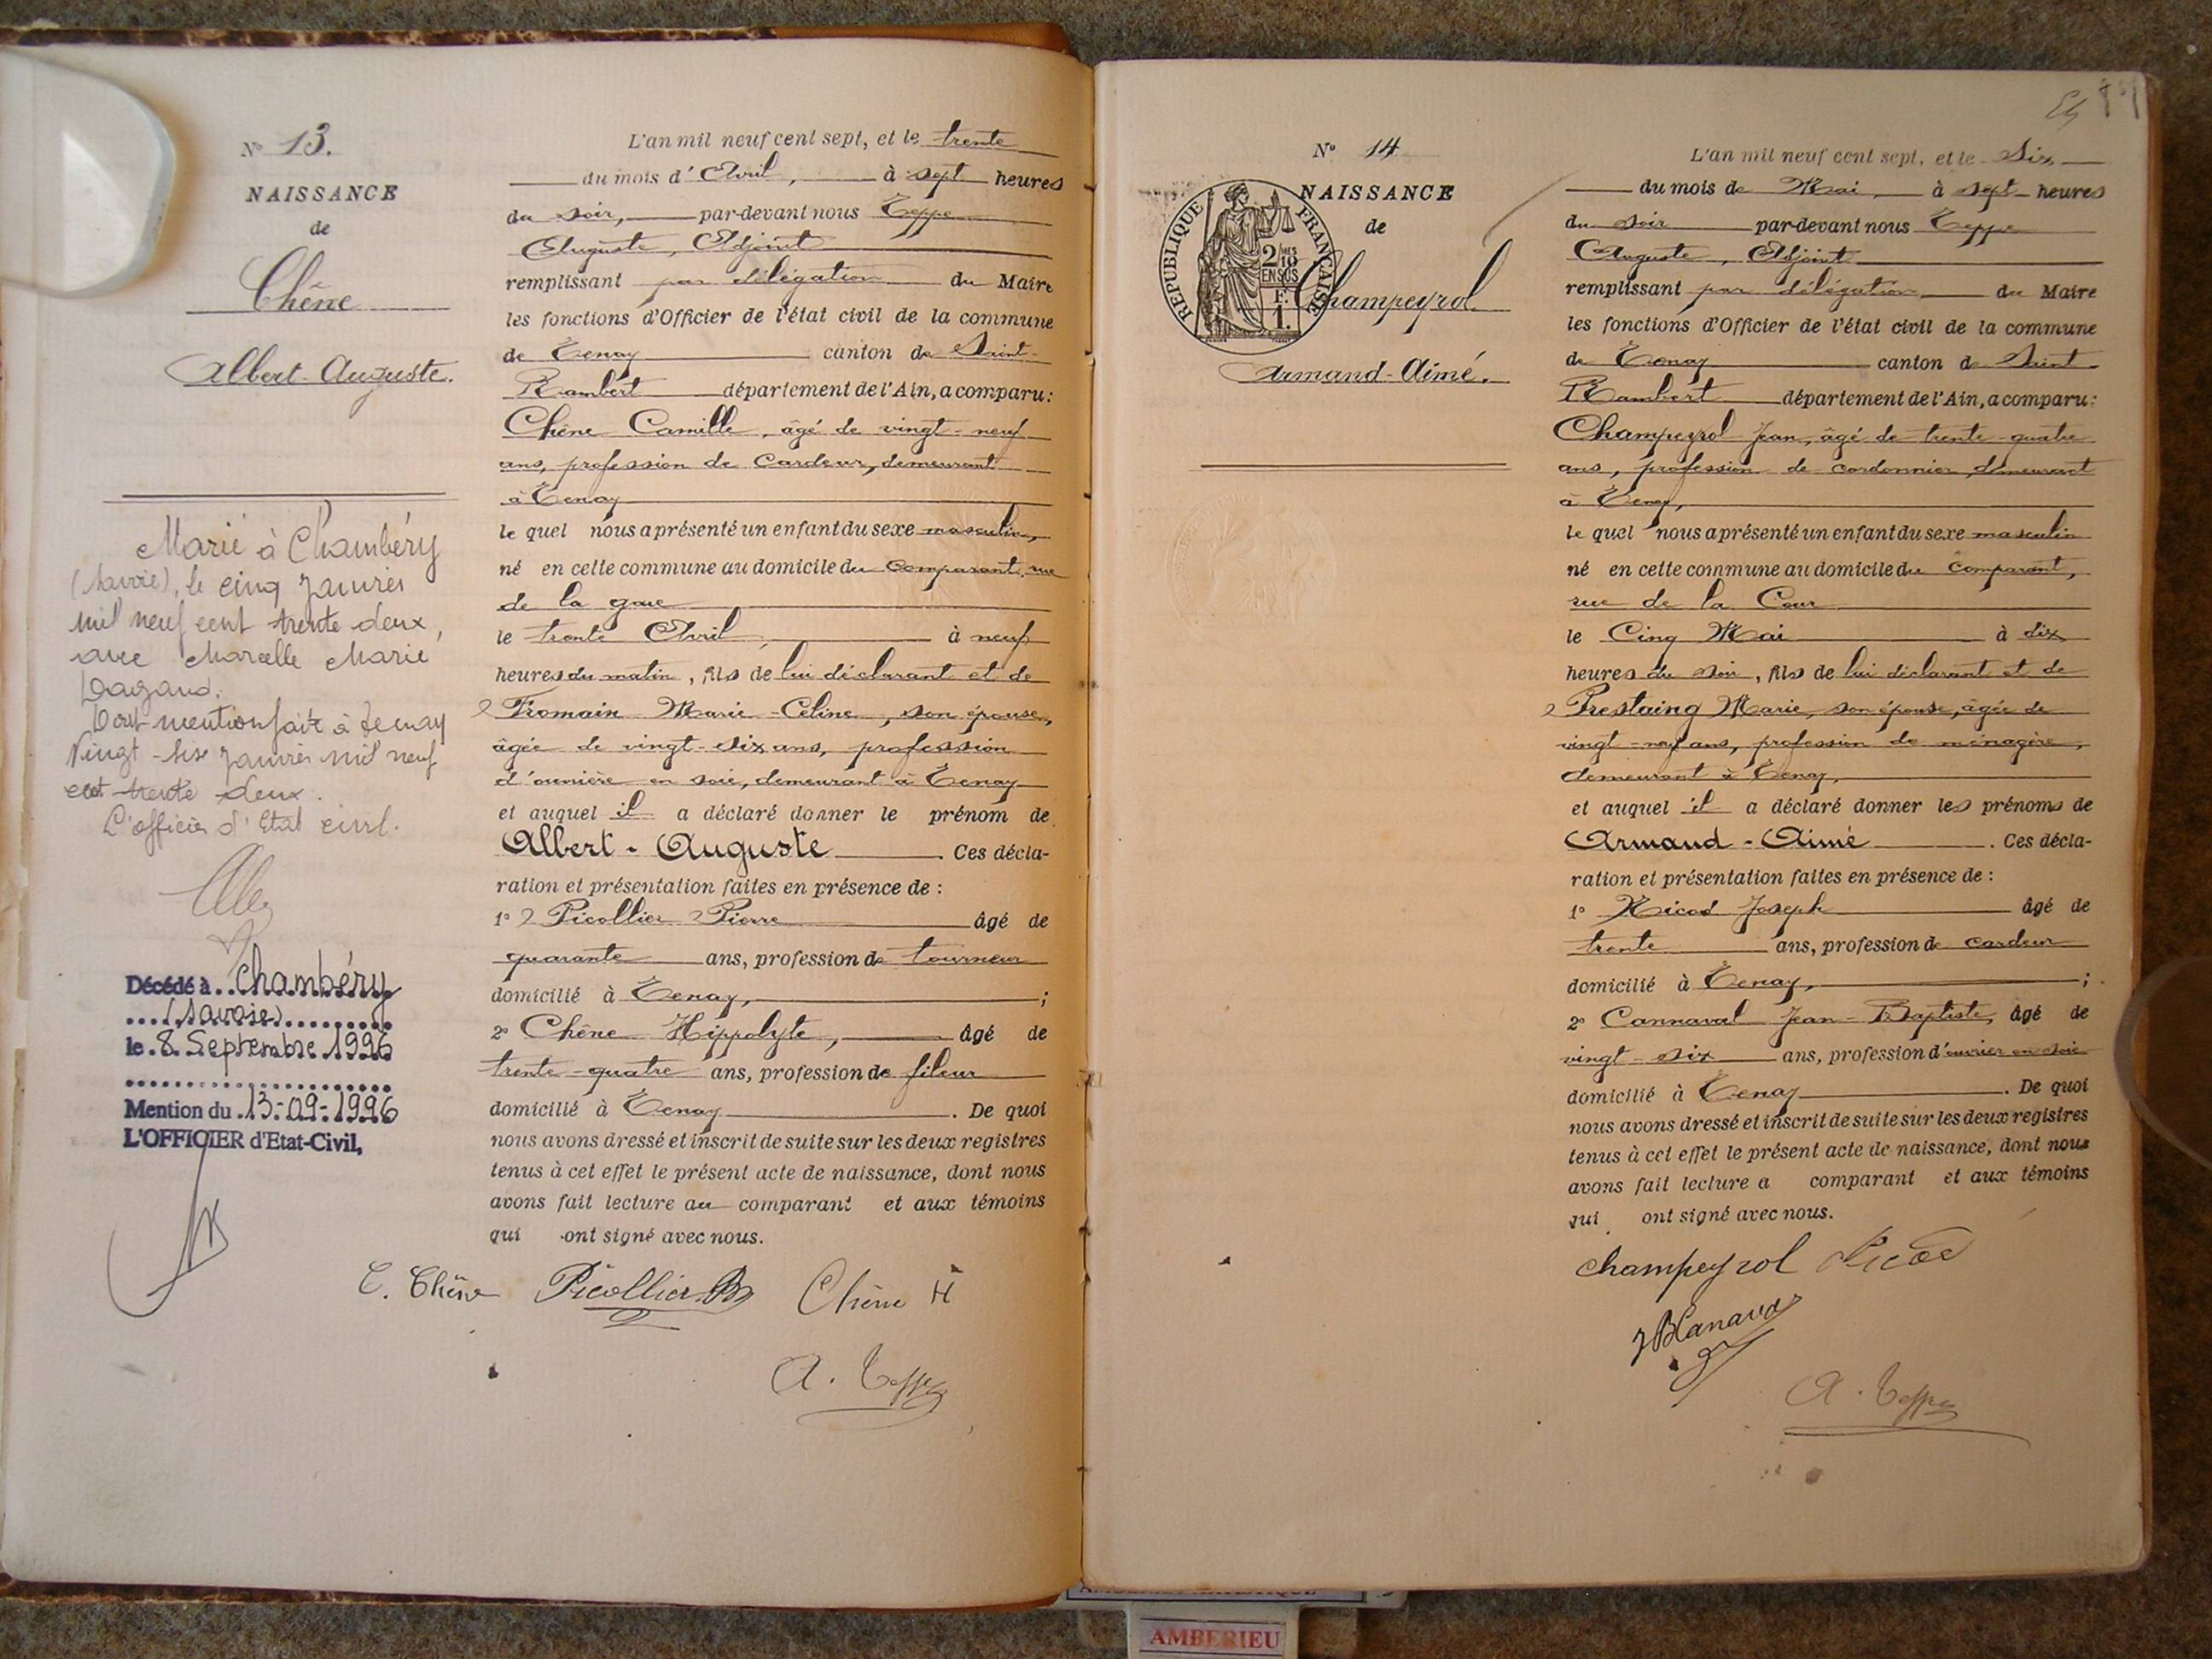 N° 13.
NAISSANCE
de
Chêne
Albert-Auguste.
Marié à Chambéry
(Savoie), le cinq janvier
mil neuf cent trente deux,
avec Marcelle Marie
Dagand.
Dont mention faite à Tenay
Vingt-six janvier mil neuf
cent trente deux.
L'officier d'Etat civil.
Décédé à Chambéry
(Savoie)
le 8 Septembre 1996
Mention du 13-09-1996
L'OFFICIER d'Etat-Civil,
L'an mil neuf cent sept, et le trente
du mois d'Avril, à sept heures
du soir, par-devant nous Teppe
Auguste, Adjoint
remplissant par délégation du Maire
les fonctions d'Officier de l'état civil de la commune
de Tenay canton de Saint-
Rambert département de l'Ain, a comparu:
Chêne Camille, âgé de vingt-neuf
ans, profession de Cardeur, demeurant
à Tenay
le quel nous a présenté un enfant du sexe masculin,
né en cette commune au domicile du Comparant, rue
de la gare
le trente Avril, à neuf
heures du matin, fils de lui déclarant et de
Fromain Marie-Celine, son épouse,
âgée de vingt-six ans, profession
d'ouvrière en soie, demeurant à Tenay
et auquel il a déclaré donner le prénom de
Albert-Auguste. Ces décla-
ration et présentation faites en présence de :
1° Picollier Pierre âgé de
quarante ans, profession de tourneur
domicilié à Tenay, ;
2° Chêne Hippolyte, âgé de
trente-quatre ans, profession de fileur
domicilié à Tenay. De quoi
nous avons dressé et inscrit de suite sur les deux registres
tenus à cet effet le présent acte de naissance, dont nous
avons fait lecture au comparant et aux témoins
qui ont signé avec nous.
C. Chêne Picollier Chêne H
A. Teppe
N° 14
NAISSANCE
de
Champeyrol
Armand-Aimé.
REPUBLIQUE FRANÇAISE
2 MES 10 EN SUS
F. 1.
L'an mil neuf cent sept, et le Six
du mois de Mai, à sept heures
du soir par-devant nous Teppe
Auguste, Adjoint
remplissant par délégation du Maire
les fonctions d'Officier de l'état civil de la commune
de Tenay canton de Saint-
Rambert département de l'Ain, a comparu:
Champeyrol Jean, âgé de trente-quatre
ans, profession de cordonnier, demeurant
à Tenay,
le quel nous a présenté un enfant du sexe masculin
né en cette commune au domicile du Comparant,
rue de la Cour
le Cinq Mai à dix
heures du soir, fils de lui déclarant et de
Prestaing Marie, son épouse, âgée de
vingt-neuf ans, profession de ménagère,
demeurant à Tenay,
et auquel il a déclaré donner les prénoms de
Armand-Aimé. Ces décla-
ration et présentation faites en présence de :
1° Nicod Joseph âgé de
trente ans, profession de cardeur
domicilié à Tenay, ;
2° Cannaval Jean-Baptiste, âgé de
vingt-six ans, profession d'ouvrier en soie
domicilié à Tenay. De quoi
nous avons dressé et inscrit de suite sur les deux registres
tenus à cet effet le présent acte de naissance, dont nous
avons fait lecture a comparant et aux témoins
qui ont signé avec nous.
Champeyrol Nicod
A. Teppe
AMBERIEU